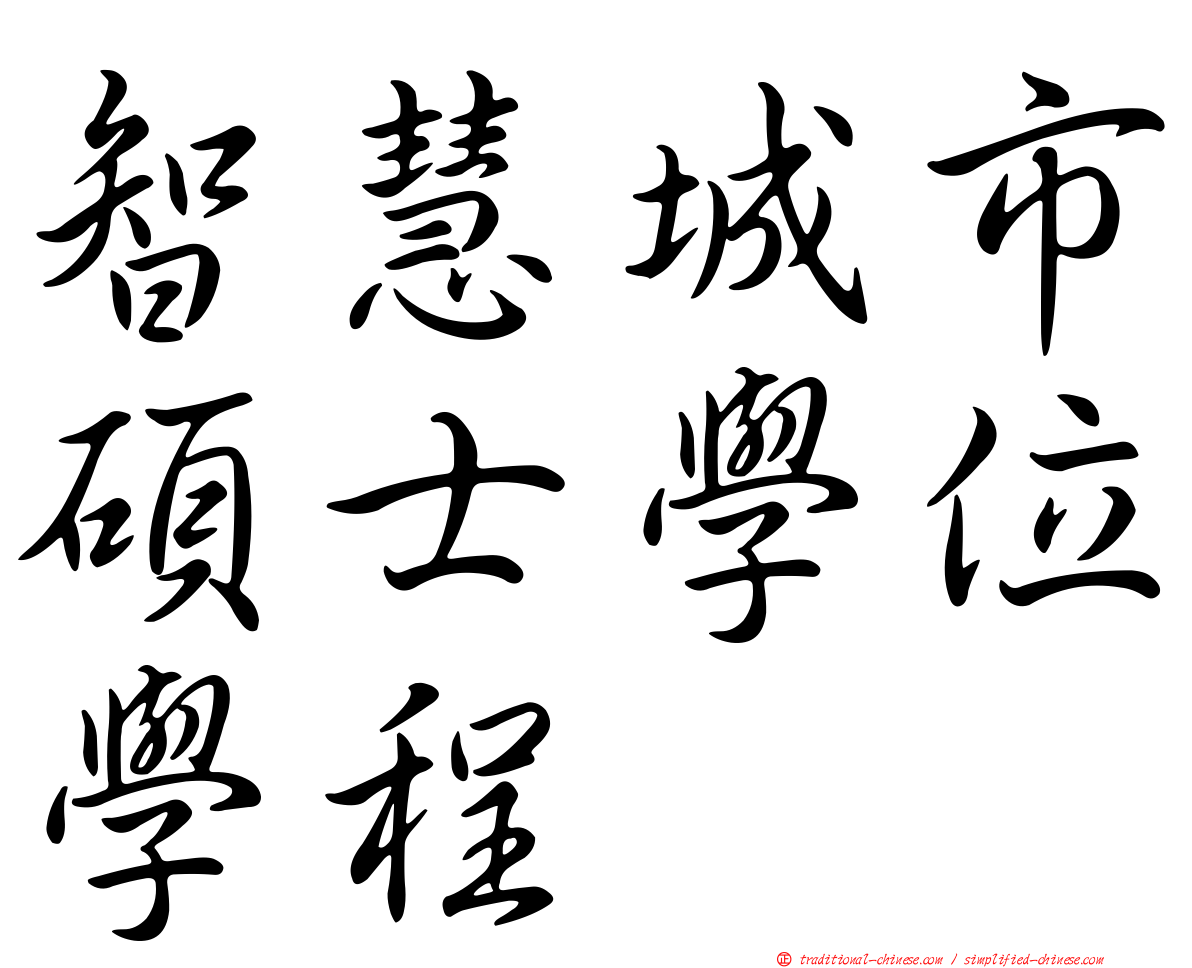 智慧城市
碩士學位
學程
正 traditional-chinese.com / simplified-chinese.com